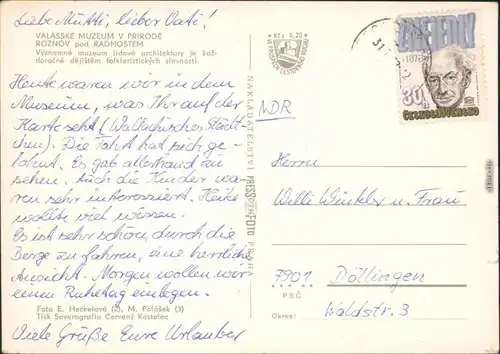 Liebe Mutti, lieber Vati!
VALAŠSKÉ MUZEUM V PŘÍRODĚ
ROŽNOV pod RADHOŠTĚM
Významné muzeum lidové architektury je kaž-
doročně dějištěm folkloristických slavností.
Heute waren wir in dem
Museum, was Ihr auf der
Karte seht (Wallachisches Städt-
chen). Die Fahrt hat sich ge-
lohnt. Es gab allerhand zu
sehen. Auch die Kinder wa-
ren sehr interessiert. Heike
wollte viel wissen.
Es ist sehr schön, durch die
Berge zu fahren, eine herrliche
Ansicht. Morgen wollen wir
einen Ruhetag einlegen.
Foto E. Heckelová (2), M. Polášek (3)
Tisk Severografia Červený Kostelec
Viele Grüße Eure Urlauber
NAKLADATELSTVÍ PRESSFOTO PRAHA
Kčs 0,20
NDR
ZD. NEJEDLÝ
1878
30h
ČESKOSLOVENSKO
Herrn
Willi Winkler u. Frau
7901 Döllingen
PSČ
Waldstr. 3
Okres: